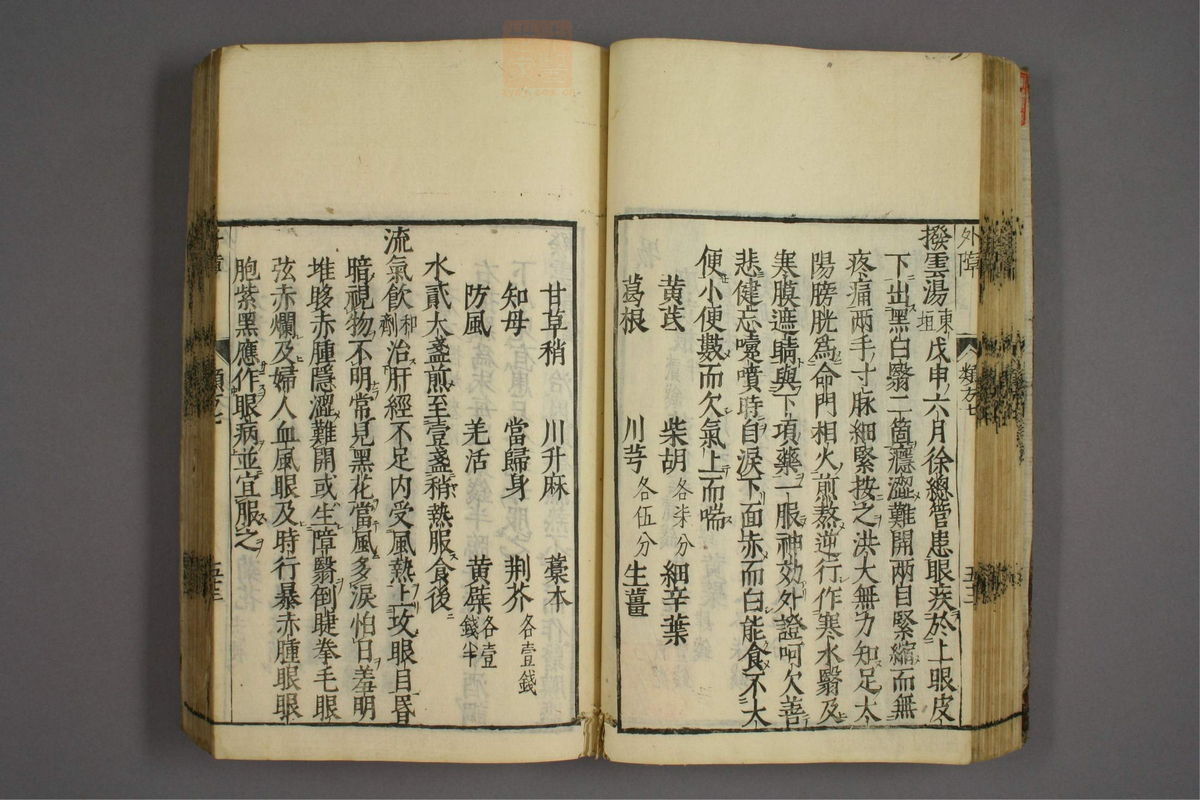 外障 類方七 五三
撥雲湯東垣戊申六月徐總管患眼疾於上眼皮
下出黑白翳二箇癮澀難開兩目緊縮而無
疼痛兩手寸脉細緊按之洪大無力知足太
陽膀胱爲命門相火煎熬逆行作寒水翳及
寒膜遮睛與下項藥一服神効外證呵欠善
悲健忘嚏噴時自淚下面赤而白能食不大
便小便數而欠氣上而喘
黄芪 柴胡各柒分 細辛葉
葛根 川芎各伍分 生薑
甘草稍 川升麻 藁本
知母 當歸身 荆芥各壹錢
防風 羌活 黄蘗各壹錢半
水貳大盞煎至壹盞稍熱服食後
流氣飲和劑治肝經不足内受風熱上攻眼目昏
暗視物不明常見黑花當風多淚怕日羞明
堆眵赤腫隱澀難開或生障翳倒睫拳毛眼
弦赤爛及婦人血風眼及時行暴赤腫眼眼
胞紫黑應作眼病並宜服之